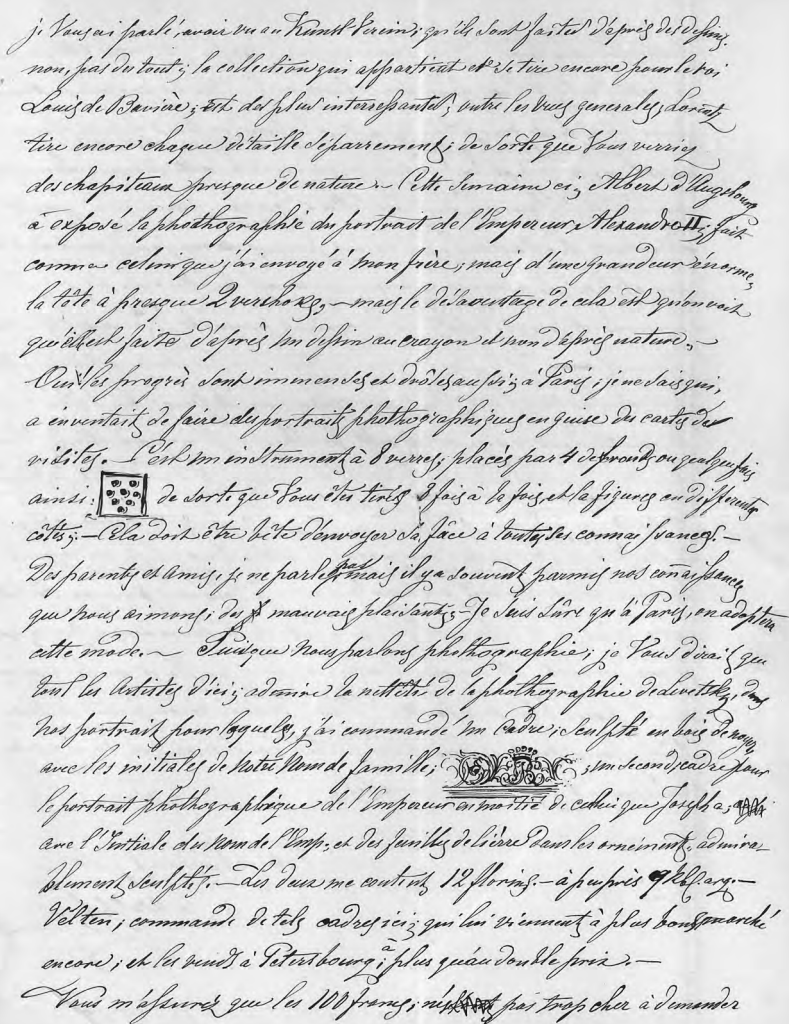 je Vous ai parlé, avoir vu au Kunst Verein; qu'ils sont faites d'après des dessins,
non, pas du tout; la collection qui appartient et se tire encore pour le roi
Louis de Bavière; est des plus interressantes; outre les vues generales, Lorentz
tire encore chaque détaille séparrement; de sorte que Vous verriez
des chapiteaux presque de nature. – Cette semaine ci; Albert d'Augsbourg
à exposé la phothographie du portrait de l'Empereur Alexandre II; fait
comme celui que j'ai envoyé à mon frère; mais d'une grandeur énorme,
la tête à presque 2 vershoks, – mais le désavantage de cela est qu'on voit
qu'elle est faite d'après un dessin au crayon et non d'après nature. –
Oui! les progrès sont immenses et drôles aussi; à Paris; je ne sais qui,
a inventait de faire des portraits phothographiques en guise des cartes de
visites. – C'est un instrument à 8 verres; placés par 4 de fronts ou quelque fois
ainsi: de sorte que Vous êtes tirés 8 fois à la fois, et la figure en differents
côtés; – Cela doit être bête d'envoyer sa fâce à toutes ses connaissances. –
Des parents et amis, je ne parle pas mais il y a souvent parmis nos connaissances
que nous aimons; des mauvais plaisants; Je suis sûre qu'à Paris, on adoptera
cette mode. – Puisque nous parlons phothographie; je Vous dirais que
tout les Artistes d'ici; admire la netteté de la phothographie de Levetsky, dans
nos portrait pour lequels, j'ai commandé un Cadre; sculpté en bois de noyer,
avec les initiales de notre Nom de famille; ; un second, cadre pour
le portrait phothographique de l'Empereur en moitié de celui que Joseph a;
avec l'Initiale du Nom de l'Emp. et des feuilles de lièrre dans les ornements, admira-
blement sculptés. – Les deux me coutent 12 florins. – à peu près 9 arg. –
Velten; commande de tels cadres ici; qui lui viennent à plus bons marché
encore; et les vends à Petersbourg; à plus qu'au double prix. –
Vous m'assurez que les 100 francs; pas trop cher à demander